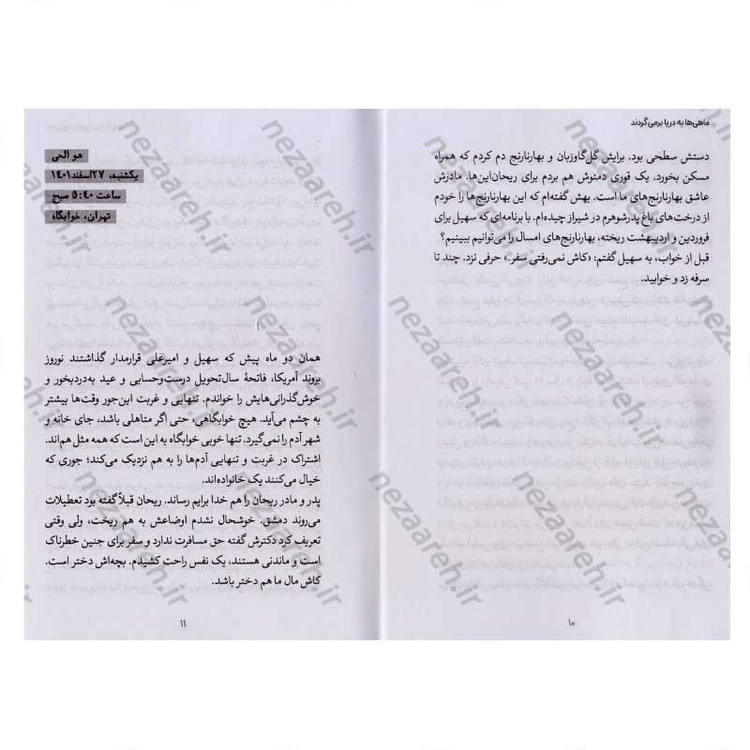 ماهی‌ها به دریا برمی‌گردند
دستش سطحی بود. برایش گل‌گاوزبان و بهارنارنج دم کردم که همراه
مسکن بخورد. یک قوری دمنوش هم بردم برای ریحان‌این‌ها. مادرش
عاشق بهارنارنج‌های ما است. بهش گفته‌ام که این بهارنارنج‌ها را خودم
از درخت‌های باغ پدرشوهرم در شیراز چیده‌ام. با برنامه‌ای که سهیل برای
فروردین و اردیبهشت ریخته، بهارنارنج‌های امسال را می‌توانیم ببینیم؟
قبل از خواب، به سهیل گفتم: «کاش نمی‌رفتی سفر.» حرفی نزد. چند تا
سرفه زد و خوابید.
۱۰
هو الحی
یکشنبه، ۲۷اسفند۱۴۰۱
ساعت ۵:۴۰ صبح
تهران، خوابگاه
۱
همان دو ماه پیش که سهیل و امیرعلی قرارمدار گذاشتند نوروز
بروند آمریکا، فاتحهٔ سال‌تحویل درست‌وحسابی و عید به‌دردبخور و
خوش‌گذرانی‌هایش را خواندم. تنهایی و غربت این‌جور وقت‌ها بیشتر
به چشم می‌آید. هیچ خوابگاهی، حتی اگر متاهلی باشد، جای خانه و
شهر آدم را نمی‌گیرد. تنها خوبی خوابگاه به این است که همه مثل هم‌اند.
اشتراک در غربت و تنهایی آدم‌ها را به هم نزدیک می‌کند؛ جوری که
خیال می‌کنند یک خانواده‌اند.
پدر و مادر ریحان را هم خدا برایم رساند. ریحان قبلاً گفته بود تعطیلات
می‌روند دمشق. خوشحال نشدم اوضاعش به هم ریخت، ولی وقتی
تعریف کرد دکترش گفته حق مسافرت ندارد و سفر برای جنین خطرناک
است و ماندنی هستند، یک نفس راحت کشیدم. بچه‌اش دختر است.
کاش مال ما هم دختر باشد.
۱۱
nezaareh.ir
nezaareh.ir
nezaareh.ir
nezaareh.ir
nezaareh.ir
nezaareh.ir